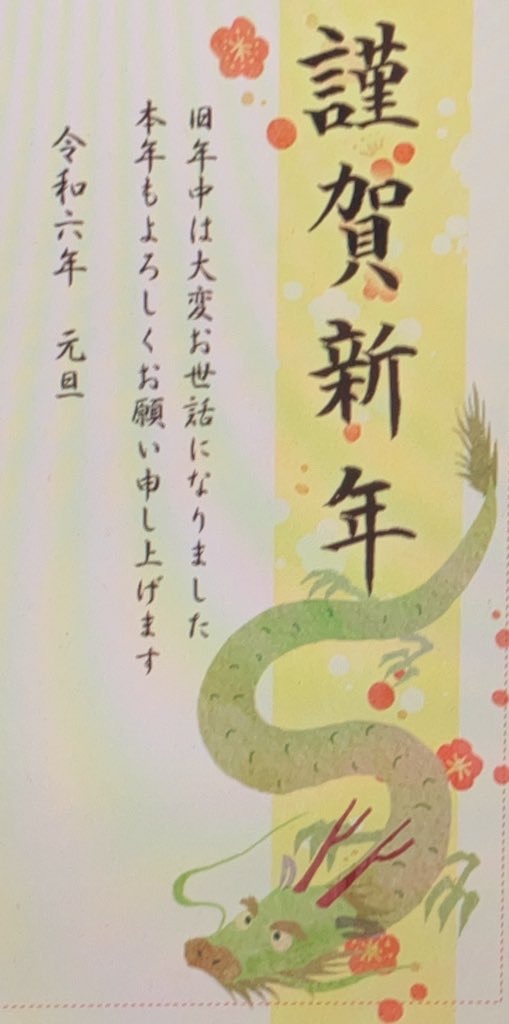 謹賀新年
旧年中は大変お世話になりました
本年もよろしくお願い申し上げます
令和六年 元旦